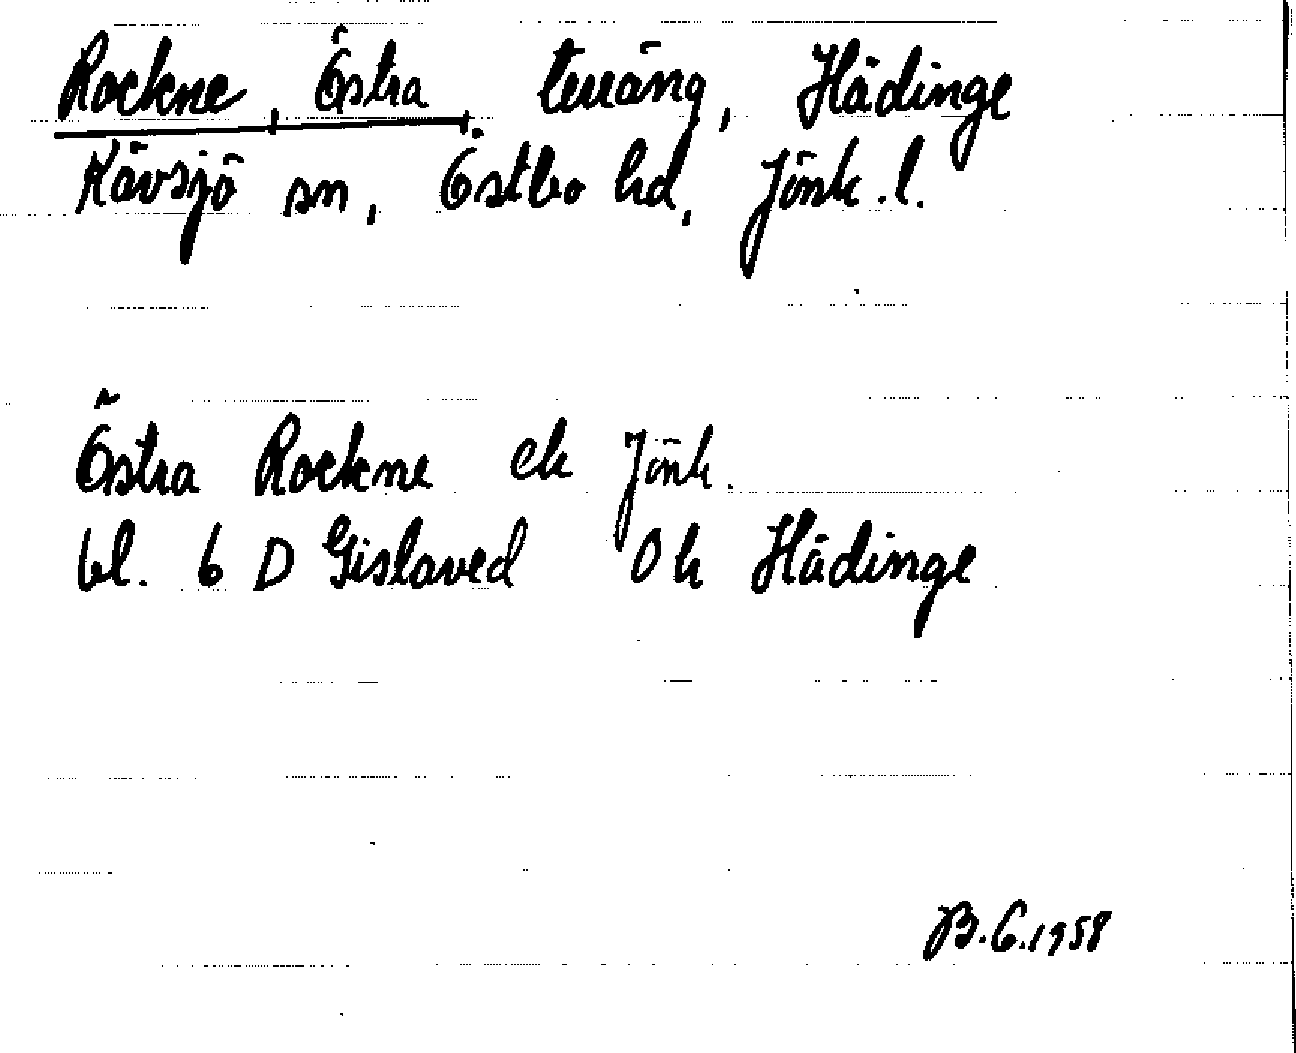 Rockne, Östra, terräng, Hädinge
Kävsjö sn, Östbo hd, Jönk.l.
Östra Rockne ek Jönk.
bl. 6 D Gislaved Ok Hädinge
B.G.1958